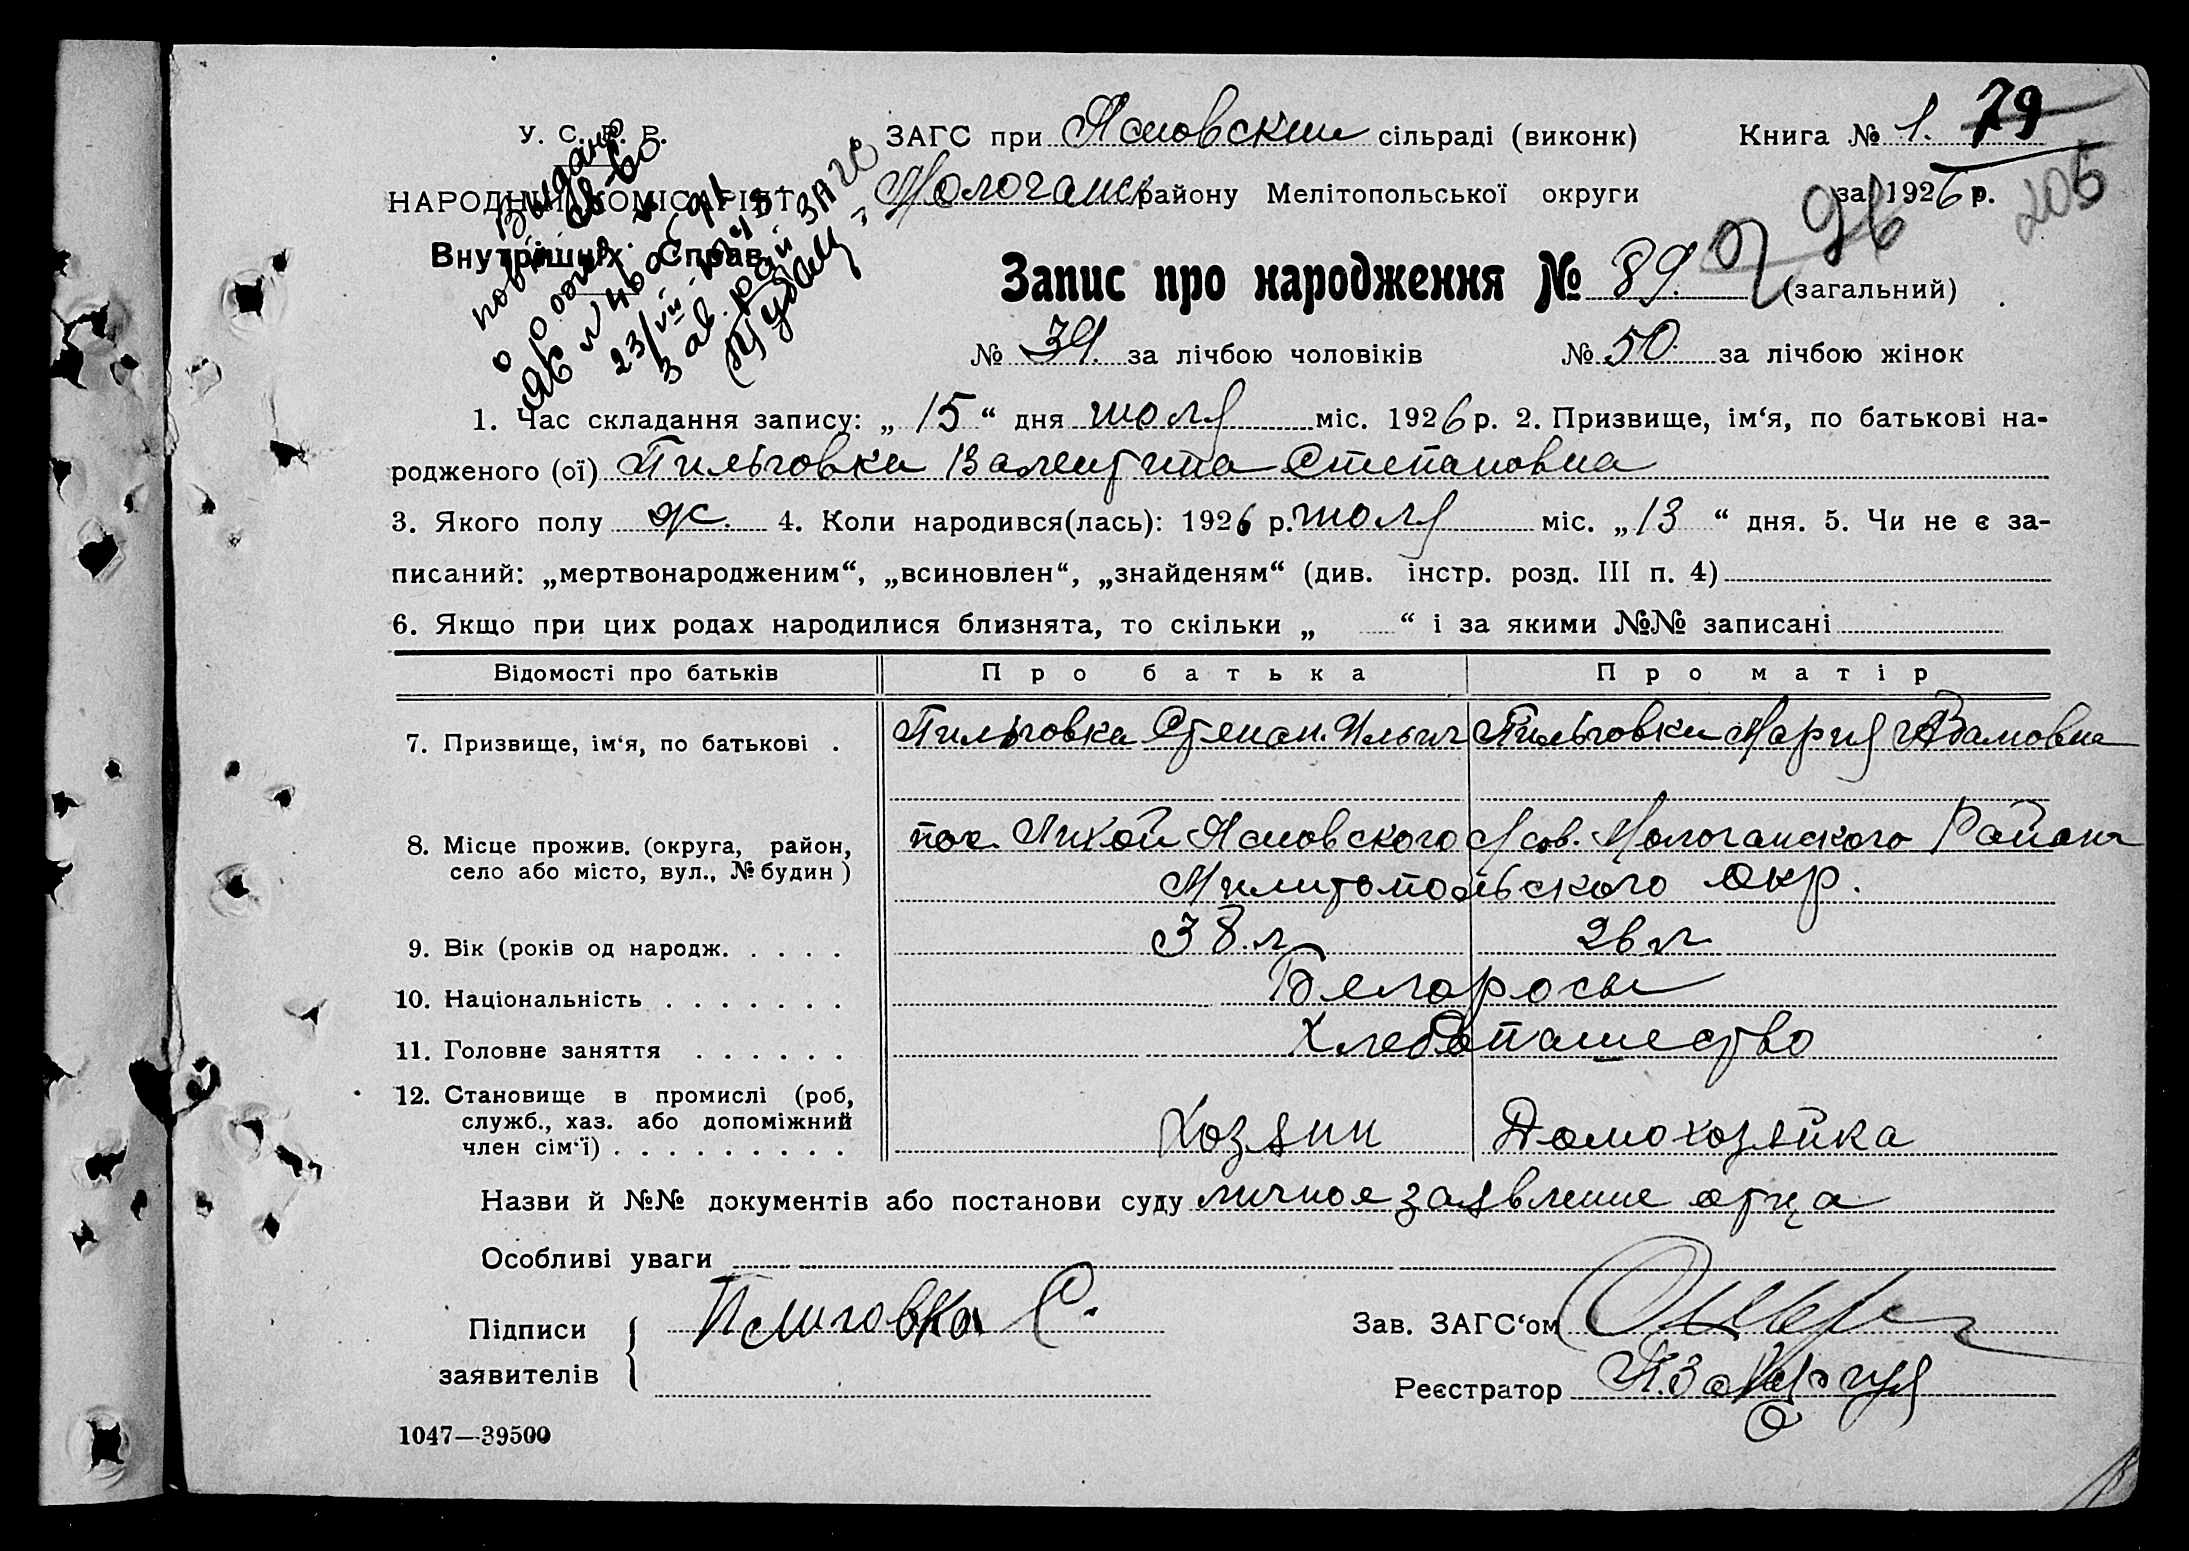 У. С. Р. Р.
НАРОДНИЙ КОМІСАРІЯТ
Внутрішніх Справ
ЗАГС при Ясновским сільраді (виконк)
Книга № 1. 79
района Мелітопольської округи
за 1926 р. 205
96
Запис про народження № 89. (загальний)
№ 39. за лічбою чоловіків № 50. за лічбою жінок
1. Час складання запису: „ 15 “ дня июля міс. 1926 р. 2. Призвище, ім‘я, по батькові на-
родженого (ої) Пильговка Валентина Степановна
3. Якого полу ж. 4. Коли народився(лась): 1926 р. июля міс. „ 13 “ дня. 5. Чи не є за-
писаний: „мертвонародженим“, „всиновлен“, „знайденям“ (див. інстр. розд. III п. 4)
6. Якщо при цих родах народилися близнята, то скільки „ “ і за якими №№ записані
Відомості про батьків Про батька Про матір
7. Призвище, ім‘я, по батькові . Пильговка Степан. Ильич Пильговка Мария Адамовна
8. Місце прожив. (округа, район,
село або місто, вул., № будин )
пос. Тихой Ясновского с/сов. Мологанского Района
Милитопольского окр.
9. Вік (років од народж. . . . . 38. л 26 л
10. Національність . . . . . . . Белоросы
11. Головне заняття . . . . . . Хлебопашество
12. Становище в промислі (роб,
служб., хаз. або допоміжний
член сім‘ї) . . . . . . . . . Хозяин Домохозяйка
Назви й №№ документів або постанови суду личное заявление отца
Особливі уваги
Підписи
заявителів
Плиговка С.
Зав. ЗАГС‘ом
Реєстратор
1047—39500